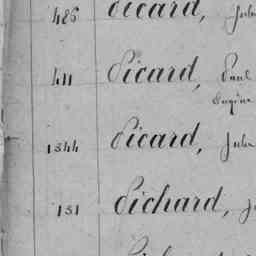 486 Picard, Jules
411 Picard, Paul
Eugène
1344 Picard, Jules
131 Pichard,